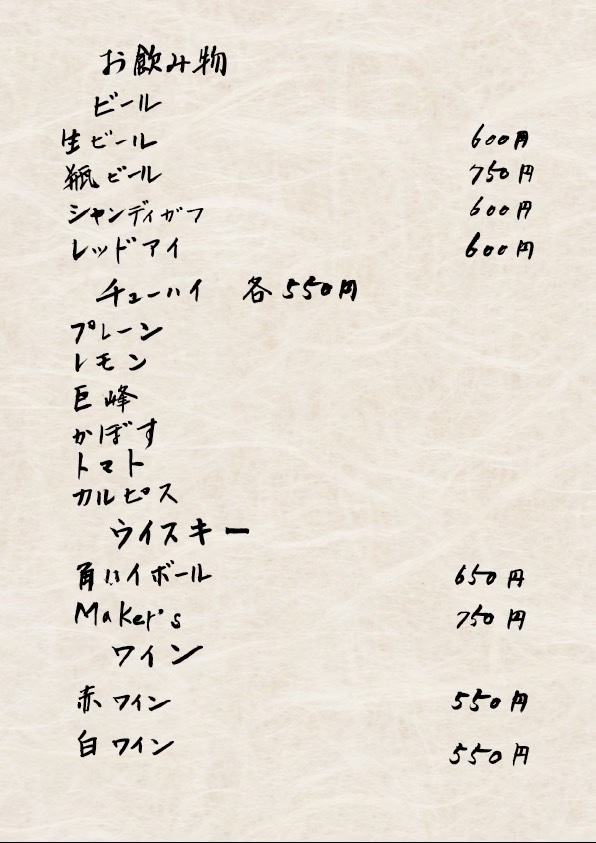 お飲み物
ビール
生ビール 600円
瓶ビール 750円
シャンディガフ 600円
レッドアイ 600円
チューハイ 各550円
プレーン
レモン
巨峰
かぼす
トマト
カルピス
ウイスキー
角ハイボール 650円
Maker's 750円
ワイン
赤ワイン 550円
白ワイン 550円